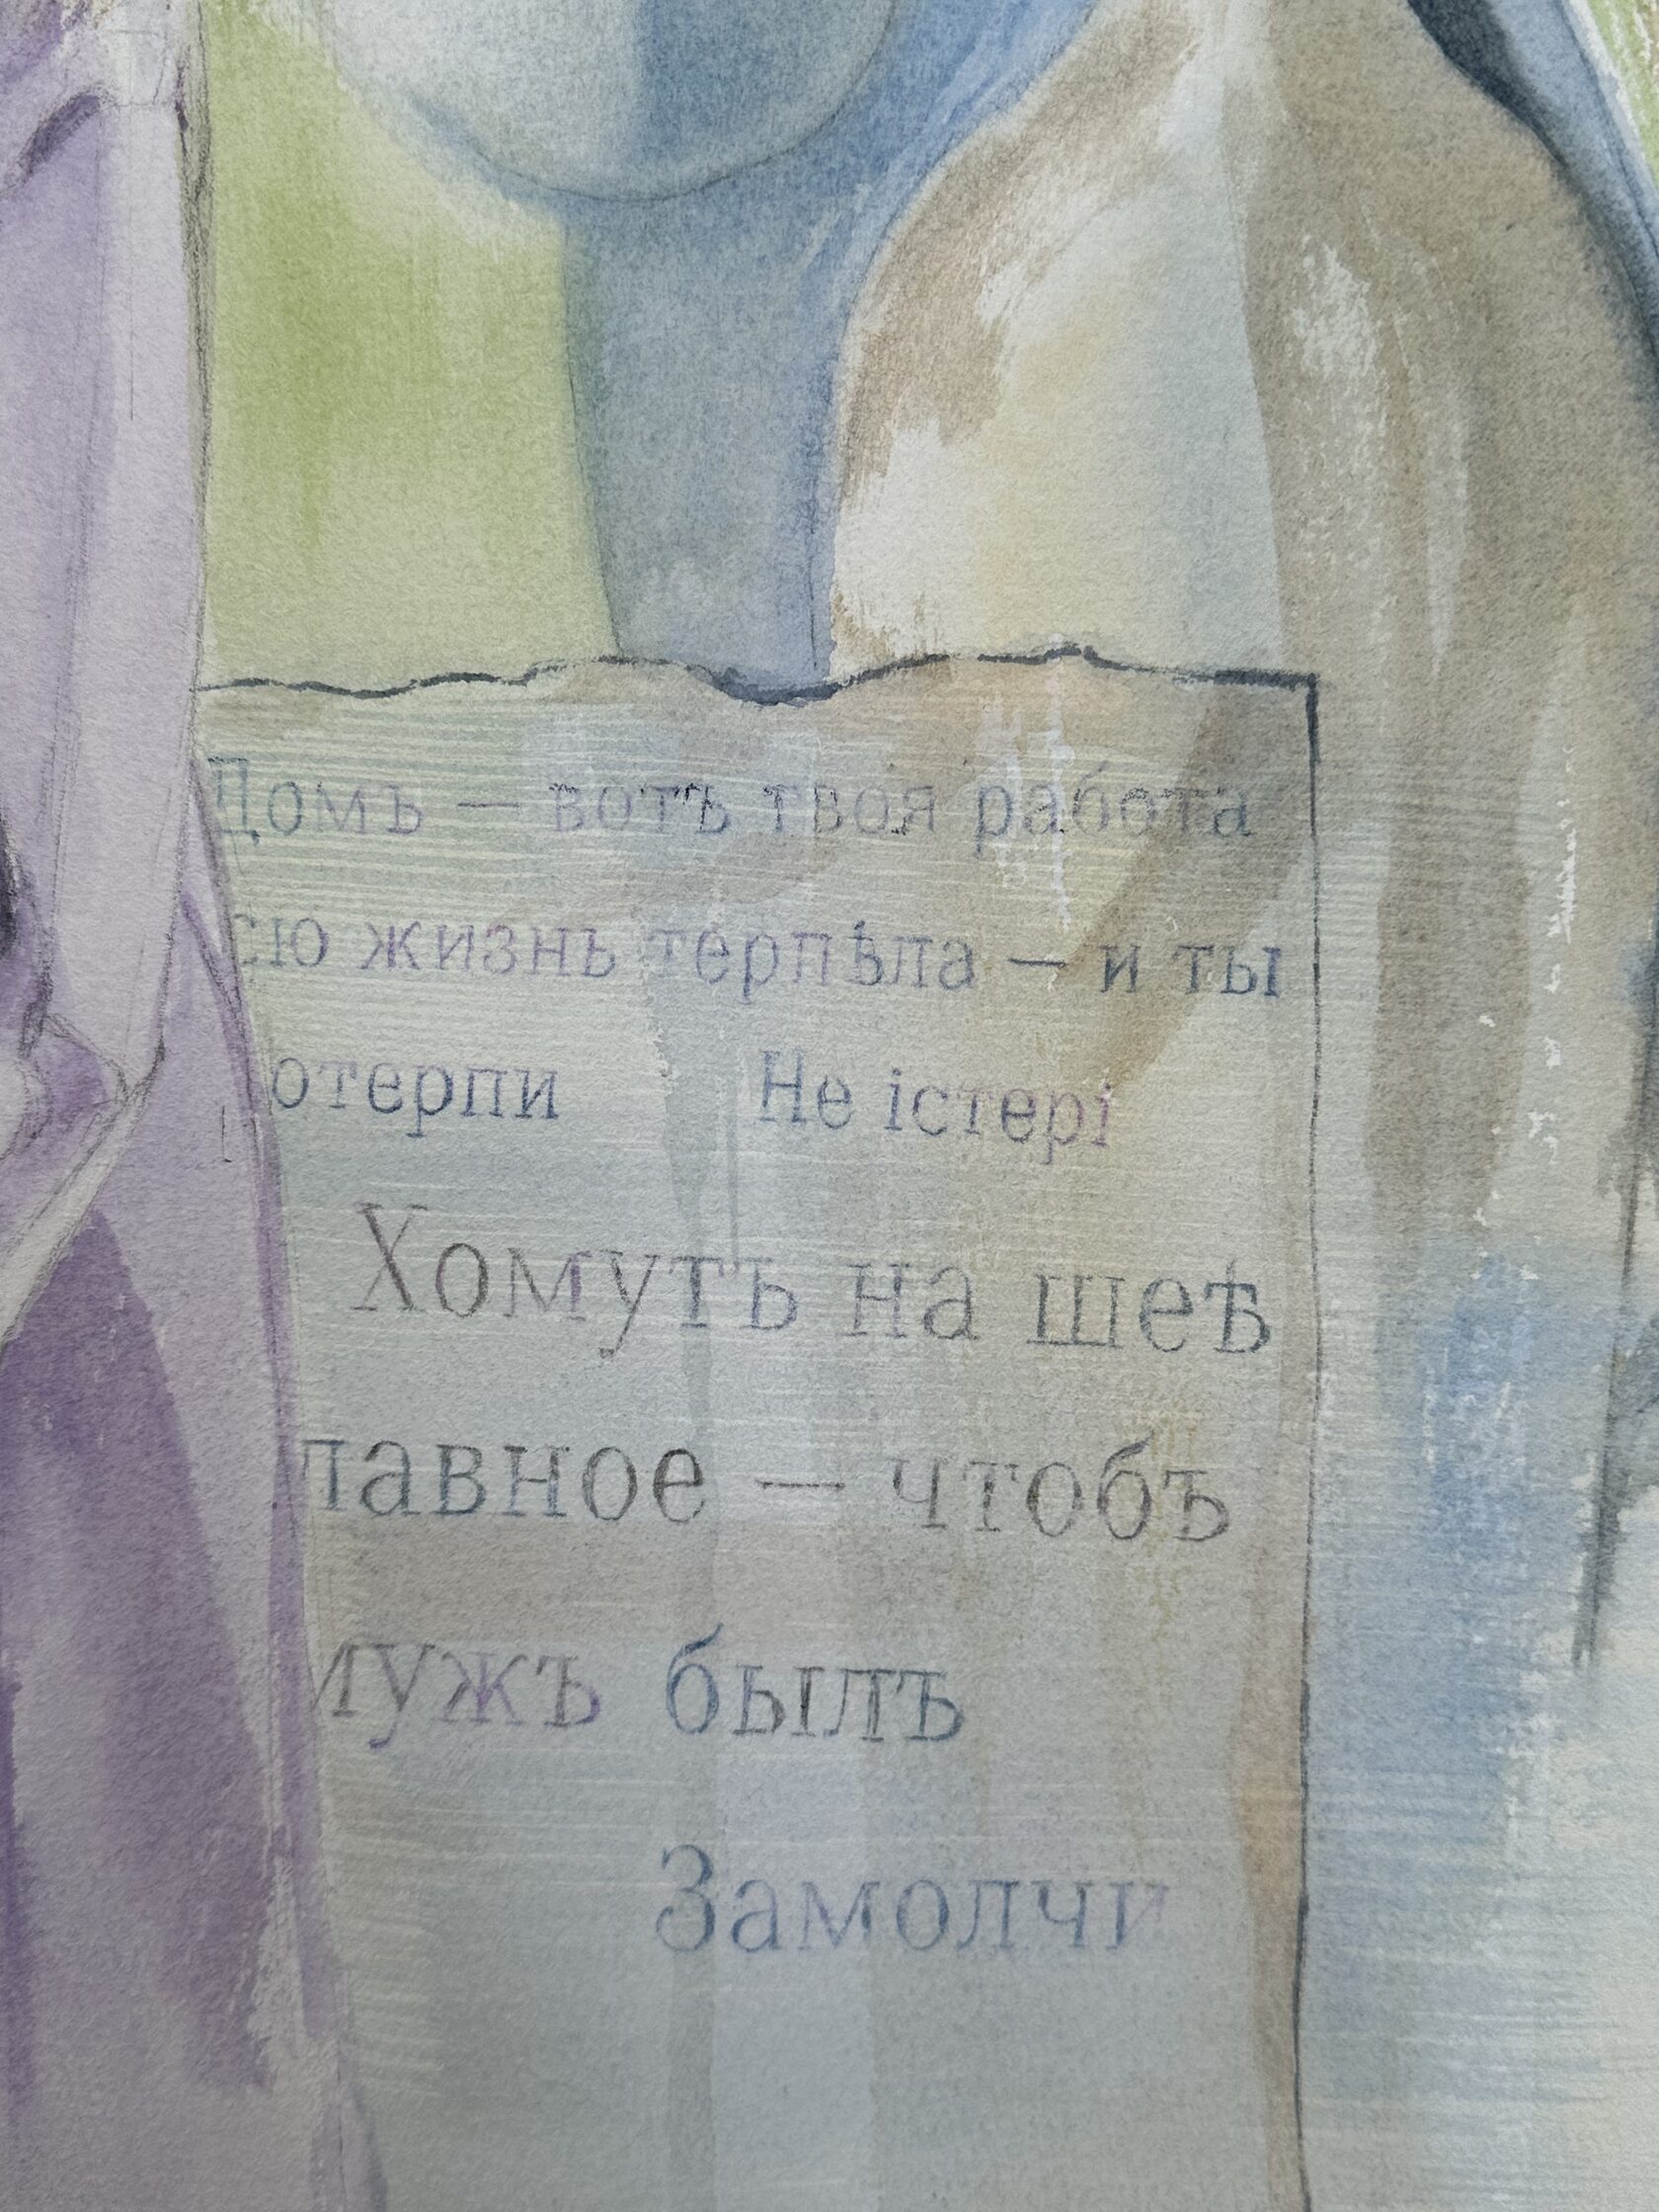 Домъ — вотъ твоя работа
сю жизнь терпѣла – и ты
отерпи Не істері
Хомутъ на шеѣ
лавное — чтобъ
мужъ былъ
Замолчи